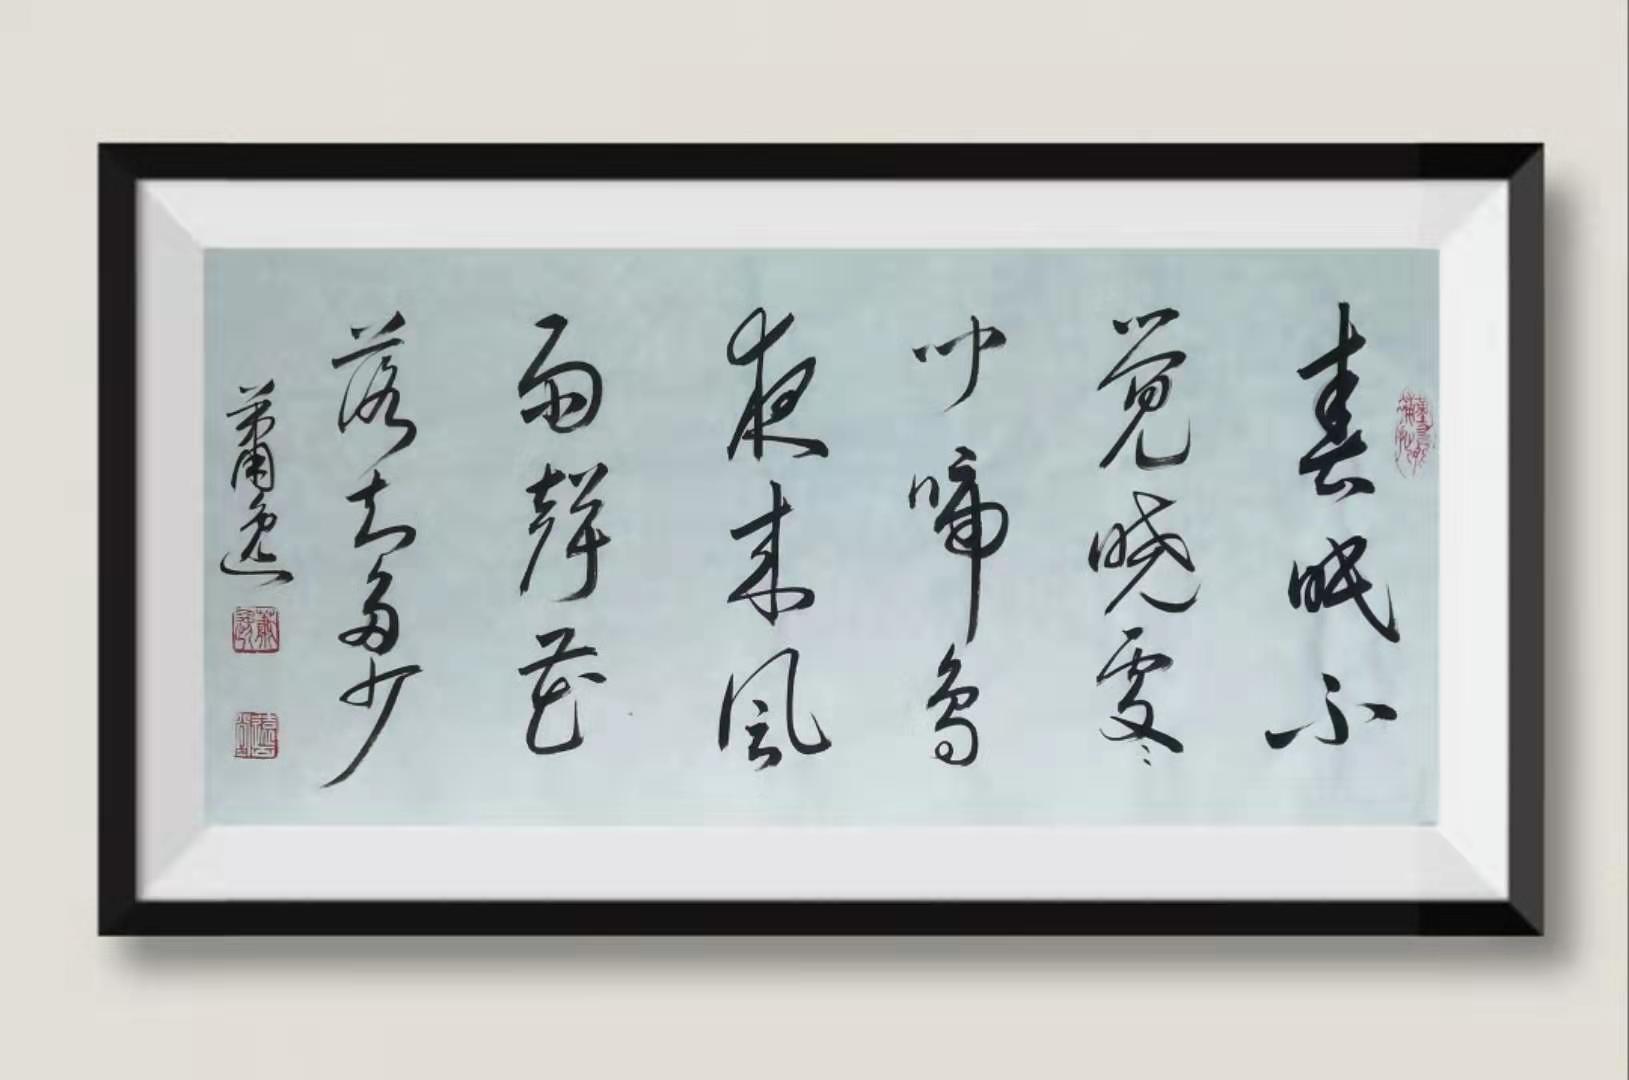 春眠不
觉晓处々
闻啼鸟
夜来风
雨聲花
落知多少
萧逸